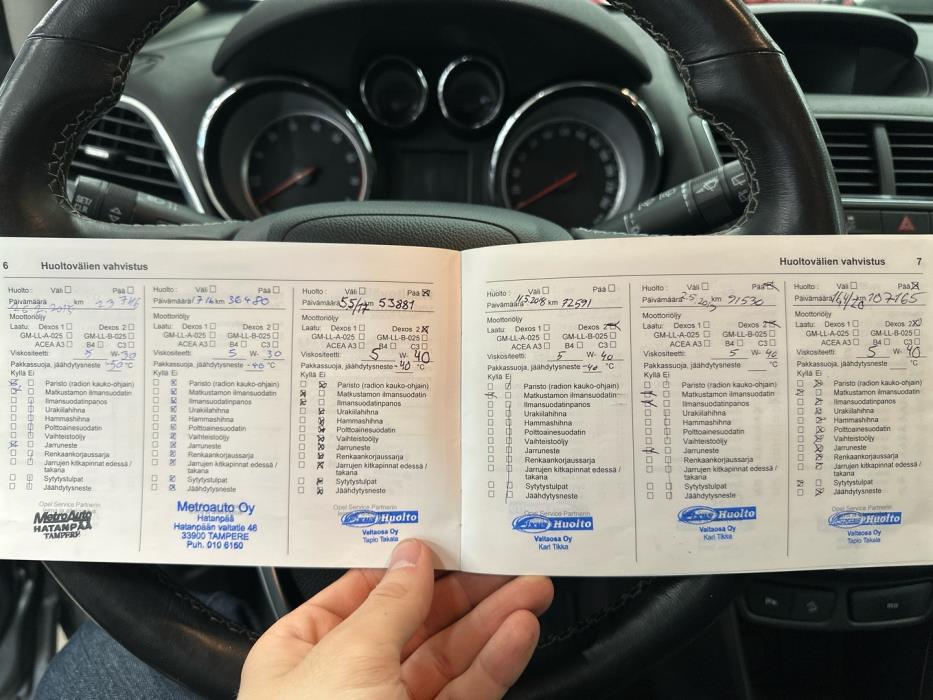 6 Huoltovälien vahvistus
Huolto: Väli Pää
Päivämäärä 26.2.2015 km 23746
Moottoriöljy
Laatu: Dexos 1 Dexos 2
GM-LL-A-025 GM-LL-B-025
ACEA A3 B4 C3
Viskositeetti: 5 W- 30
Pakkassuoja, jäähdytysneste -50 °C
Kyllä Ei
MetroAuto
HATANPÄÄ
TAMPERE
Huolto: Väli Pää
Päivämäärä km 36480
Moottoriöljy
Laatu: Dexos 1 Dexos 2
GM-LL-A-025 GM-LL-B-025
ACEA A3 B4 C3
Viskositeetti: 5 W- 30
Pakkassuoja, jäähdytysneste -40 °C
Kyllä Ei
Opel Service Partnerin
Metroauto Oy
Hatanpää
Hatanpään valtatie 46
33900 TAMPERE
Puh. 010 6160
Huolto: Väli Pää
Päivämäärä km 53881
Moottoriöljy
Laatu: Dexos 1 Dexos 2
GM-LL-A-025 GM-LL-B-025
ACEA A3 B4 C3
Viskositeetti: 5 W- 40
Pakkassuoja, jäähdytysneste -40 °C
Kyllä Ei
Paristo (radion kauko-ohjain)
Matkustamon ilmansuodatin
Ilmansuodatinpanos
Urakiilahihna
Hammashihna
Polttoainesuodatin
Vaihteistoöljy
Jarruneste
Renkaankorjaussarja
Jarrujen kitkapinnat edessä /
takana
Sytytystulpat
Jäähdytysneste
Opel Service Partnerin
Huolto
Valtaosa Oy
Tapio Takala
Huoltovälien vahvistus 7
Huolto: Väli Pää
Päivämäärä km 72591
Moottoriöljy
Laatu: Dexos 1 Dexos 2
GM-LL-A-025 GM-LL-B-025
ACEA A3 B4 C3
Viskositeetti: 5 W- 40
Pakkassuoja, jäähdytysneste -40 °C
Kyllä Ei
Paristo (radion kauko-ohjain)
Matkustamon ilmansuodatin
Ilmansuodatinpanos
Urakiilahihna
Hammashihna
Polttoainesuodatin
Vaihteistoöljy
Jarruneste
Renkaankorjaussarja
Jarrujen kitkapinnat edessä /
takana
Sytytystulpat
Jäähdytysneste
Opel Service Partnerin
Huolto
Valtaosa Oy
Kari Tikka
Huolto: Väli Pää
Päivämäärä 91530
Moottoriöljy
Laatu: Dexos 1 Dexos 2
GM-LL-A-025 GM-LL-B-025
ACEA A3 B4 C3
Viskositeetti: 5 W- 40
Pakkassuoja, jäähdytysneste °C
Kyllä Ei
Paristo (radion kauko-ohjain)
Matkustamon ilmansuodatin
Ilmansuodatinpanos
Urakiilahihna
Hammashihna
Polttoainesuodatin
Vaihteistoöljy
Jarruneste
Renkaankorjaussarja
Jarrujen kitkapinnat edessä /
takana
Sytytystulpat
Jäähdytysneste
Huolto
Valtaosa Oy
Kari Tikka
Huolto: Väli Pää
Päivämäärä 107165
Moottoriöljy
Laatu: Dexos 1 Dexos 2
GM-LL-A-025 GM-LL-B-025
ACEA A3 B4 C3
Viskositeetti: 5 W- 40
Pakkassuoja, jäähdytysneste °C
Kyllä Ei
Paristo (radion kauko-ohjain)
Matkustamon ilmansuodatin
Ilmansuodatinpanos
Urakiilahihna
Hammashihna
Polttoainesuodatin
Vaihteistoöljy
Jarruneste
Renkaankorjaussarja
Jarrujen kitkapinnat edessä /
takana
Sytytystulpat
Jäähdytysneste
Opel Service Partnerin
Huolto
Valtaosa Oy
Tapio Takala